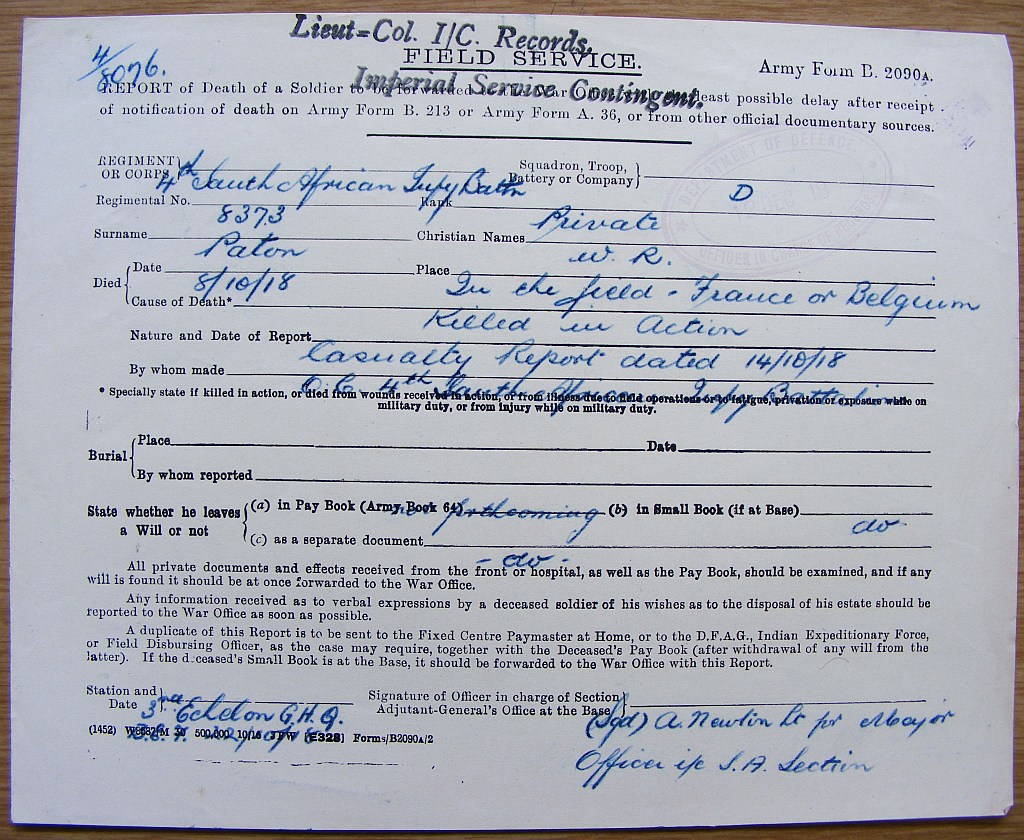 Lieut=Col. I/C. Records.
FIELD SERVICE.
4/8076.
Army Form B. 2090A.
Imperial Service Contingent.
REPORT of Death of a Soldier to be forwarded to the War Office with the least possible delay after receipt
of notification of death on Army Form B. 213 or Army Form A. 36, or from other official documentary sources.
DEPARTMENT OF DEFENCE
OFFICER IN CHARGE
REGIMENT OR CORPS 4th South African Infy Battn Squadron, Troop, Battery or Company D
Regimental No. 8373 Rank Private
Surname Paton Christian Names W. R.
Died Date 8/10/18 Place In the field - France or Belgium
Cause of Death* Killed in Action
Nature and Date of Report Casualty Report dated 14/10/18
By whom made O.C. 4th South African Infy Battalion
* Specially state if killed in action, or died from wounds received in action, or from illness due to field operations or to fatigue, privation or exposure while on
military duty, or from injury while on military duty.
Burial Place Date
By whom reported
State whether he leaves a Will or not (a) in Pay Book (Army Book 64) not forthcoming (b) in Small Book (if at Base) do
(c) as a separate document - do -
All private documents and effects received from the front or hospital, as well as the Pay Book, should be examined, and if any
will is found it should be at once forwarded to the War Office.
Any information received as to verbal expressions by a deceased soldier of his wishes as to the disposal of his estate should be
reported to the War Office as soon as possible.
A duplicate of this Report is to be sent to the Fixed Centre Paymaster at Home, or to the D.F.A.G., Indian Expeditionary Force,
or Field Disbursing Officer, as the case may require, together with the Deceased's Pay Book (after withdrawal of any will from the
latter). If the deceased's Small Book is at the Base, it should be forwarded to the War Office with this Report.
Station and Date 3rd Echelon G.H.Q. Signature of Officer in charge of Section Adjutant-General's Office at the Base (Sgd) A. Newlin Lt for Major
(1452) 500,000 10/16 [E328] Forms/B2090A/2
Officer i/c S.A. Section